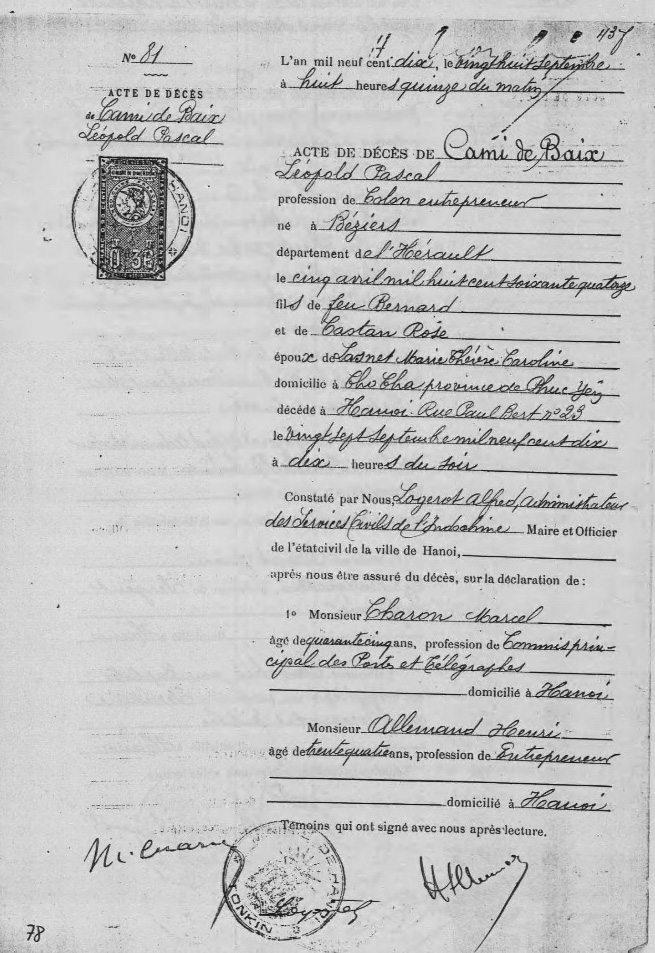 437
Nº 81
ACTE DE DÉCÈS
de Cami de Baix
Léopold Pascal
HANOI
0 36
L'an mil neuf cent dix, le vingt huit Septembre
à huit heures quinze du matin
ACTE DE DÉCÈS DE Cami de Baix
Léopold Pascal
profession de Colon entrepreneur
né à Béziers
département de l'Hérault
le cinq avril mil huit cent soixante quatorze
fils de feu Bernard
et de Castan Rose
époux de Lasnet Marie Thérèse Caroline
domicilié à Cho Cha province de Phuc Yên
décédé à Hanoi. Rue Paul Bert nº 23
le vingt sept Septembre mil neuf cent dix
à dix heures du soir
Constaté par Nous, Logerot Alfred, Administrateur
des Services Civils de l'Indochine Maire et Officier
de l'état civil de la ville de Hanoi,
après nous être assuré du décès, sur la déclaration de :
1º Monsieur Charon Marcel
âgé de quarante cinq ans, profession de Commis prin-
cipal des Postes et Télégraphes
domicilié à Hanoi
Monsieur Allemand Henri
âgé de trente quatre ans, profession de Entrepreneur
domicilié à Hanoi
Témoins qui ont signé avec nous après lecture.
DE HANOI
TONKIN
78